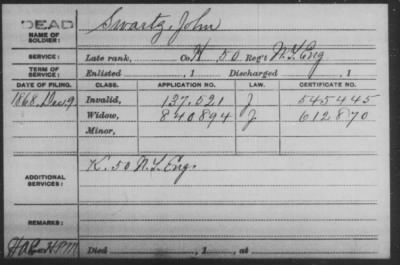 DEAD
NAME OF SOLDIER: Swartz, John
SERVICE: Late rank, Co. H 50 Reg't N.Y. Eng
TERM OF SERVICE: Enlisted , 1 Discharged , 1
DATE OF FILING. CLASS. APPLICATION NO. LAW. CERTIFICATE NO.
1868, Dec 9 Invalid, 137.521 J 545445
Widow, 840894 J 612870
Minor,
ADDITIONAL SERVICES: K. 50 N.Y. Eng.
REMARKS:
Died , 1 , at